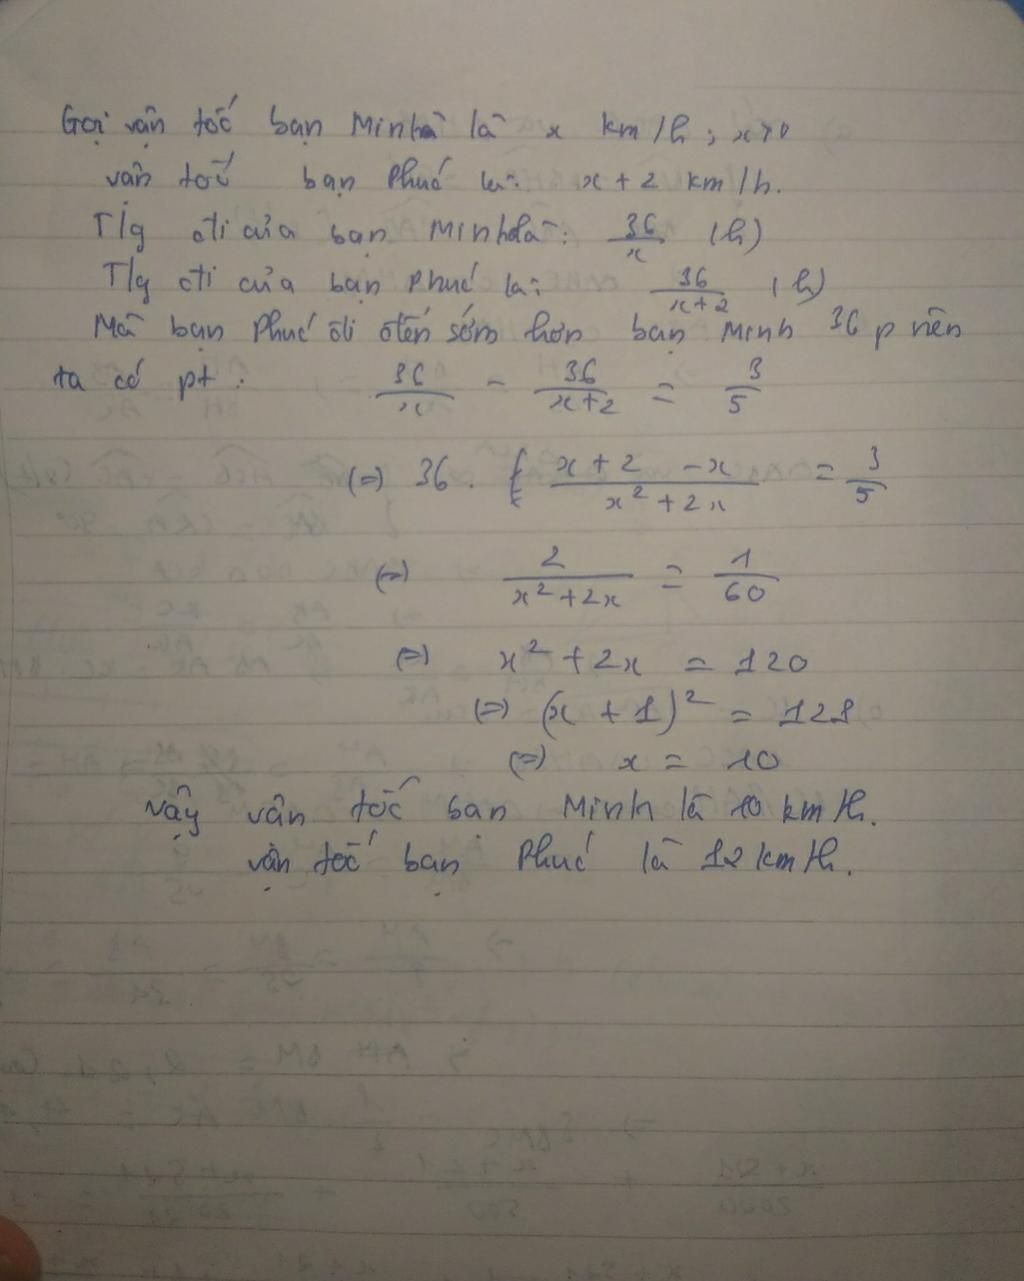 Gọi vận tốc bạn Minh là x km/h ; x>0
vân tốc bạn Phúc là: x+2 km/h.
T/g đi của bạn Minh là: 36/x (h)
T/g đi của bạn Phúc là: 36/(x+2) (h)
Mà bạn Phúc đi đến sớm hơn bạn Minh 36 p nên
ta có pt : 36/x - 36/(x+2) = 3/5
(=) 36 . (x+2 -x)/(x²+2x) = 3/5
(=) 2/(x²+2x) = 1/60
(=) x²+2x = 120
(=) (x+1)² = 121
(=) x = 10
Vậy vân tốc bạn Minh là 10 km/h.
vận tốc bạn Phúc là 12 km/h.